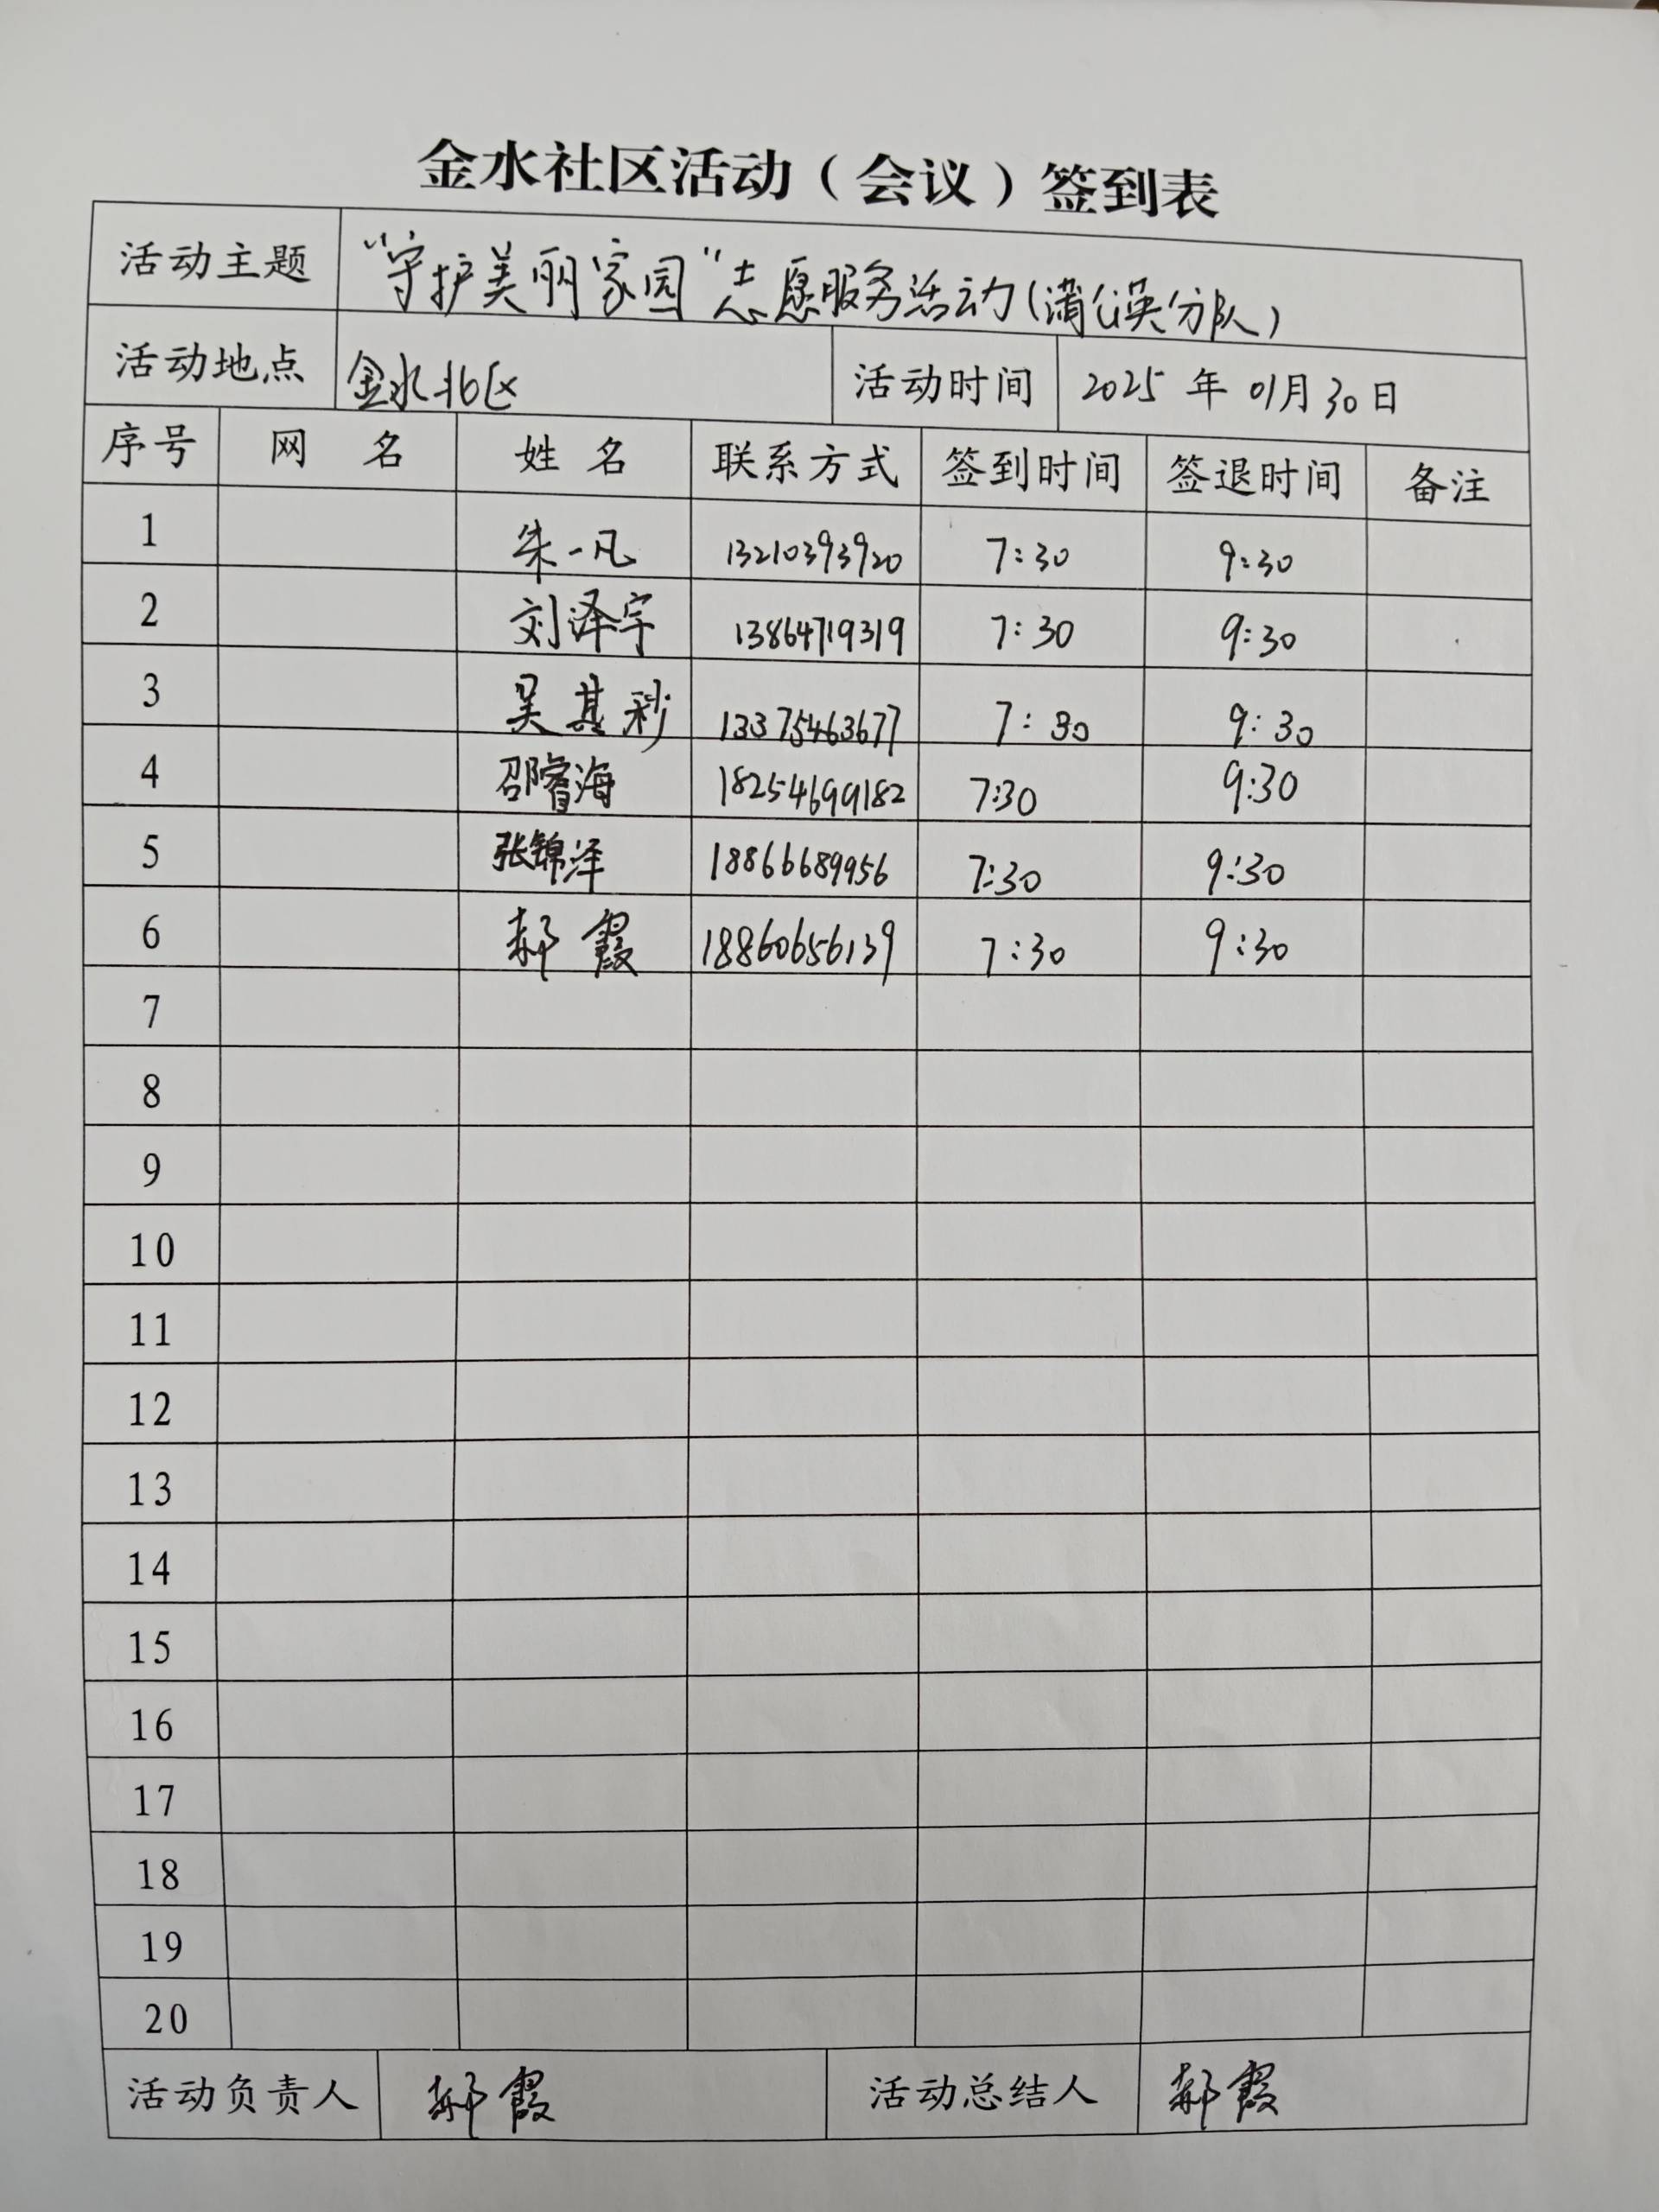 金水社区活动（会议）签到表
活动主题 “守护美丽家园”志愿服务活动(蒲公英分队)
活动地点 金水北区 活动时间 2025 年 01月 30日
序号 网 名 姓 名 联系方式 签到时间 签退时间 备注
1 朱一凡 13210393920 7:30 9:30
2 刘泽宇 13864719319 7:30 9:30
3 吴其 13375463677 7:30 9:30
4 邵睿海 18254699182 7:30 9:30
5 张锦泽 18866689956 7:30 9:30
6 郝霞 18860656139 7:30 9:30
7
8
9
10
11
12
13
14
15
16
17
18
19
20
活动负责人 郝霞 活动总结人 郝霞